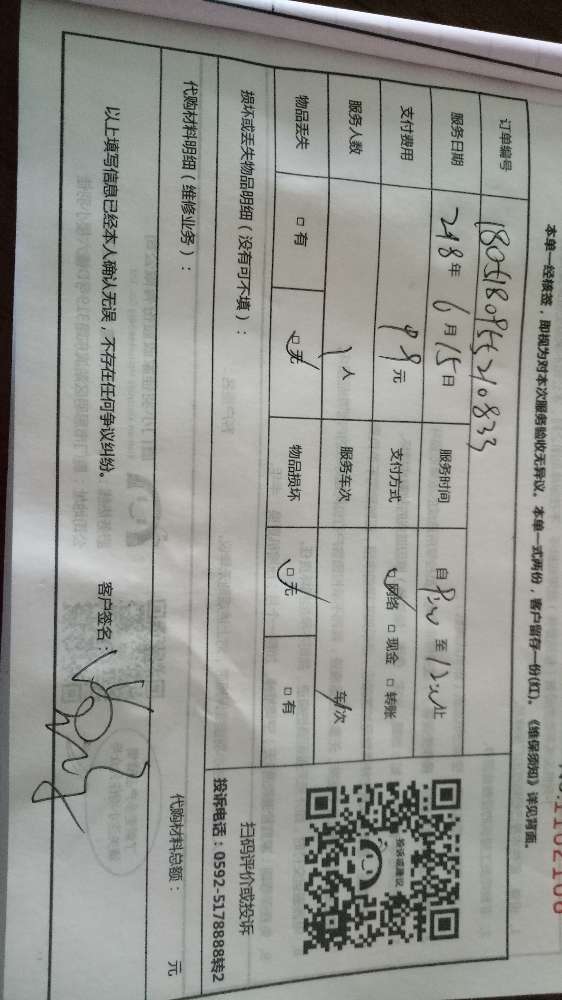 本单一经核签，即视为对本次服务验收无异议。本单一式两份，客户留存一份(红)。《维保须知》详见背面。
订单编号 1805180955210833
服务日期 2018年 6月 15日 服务时间 自 8:00 至 12:00 止
支付费用 99 元 支付方式 □网络 □现金 □转账
服务人数 1 人 服务车次 车/次
物品丢失 □有 □无 物品损坏 □无 □有
投诉或建议
扫码评价或投诉
投诉电话：0592-5178888转2
损坏或丢失物品明细（没有可不填）：
代购材料明细（维修业务）： 代购材料总额： 元
以上填写信息已经本人确认无误，不存在任何争议纠纷。 客户签名：